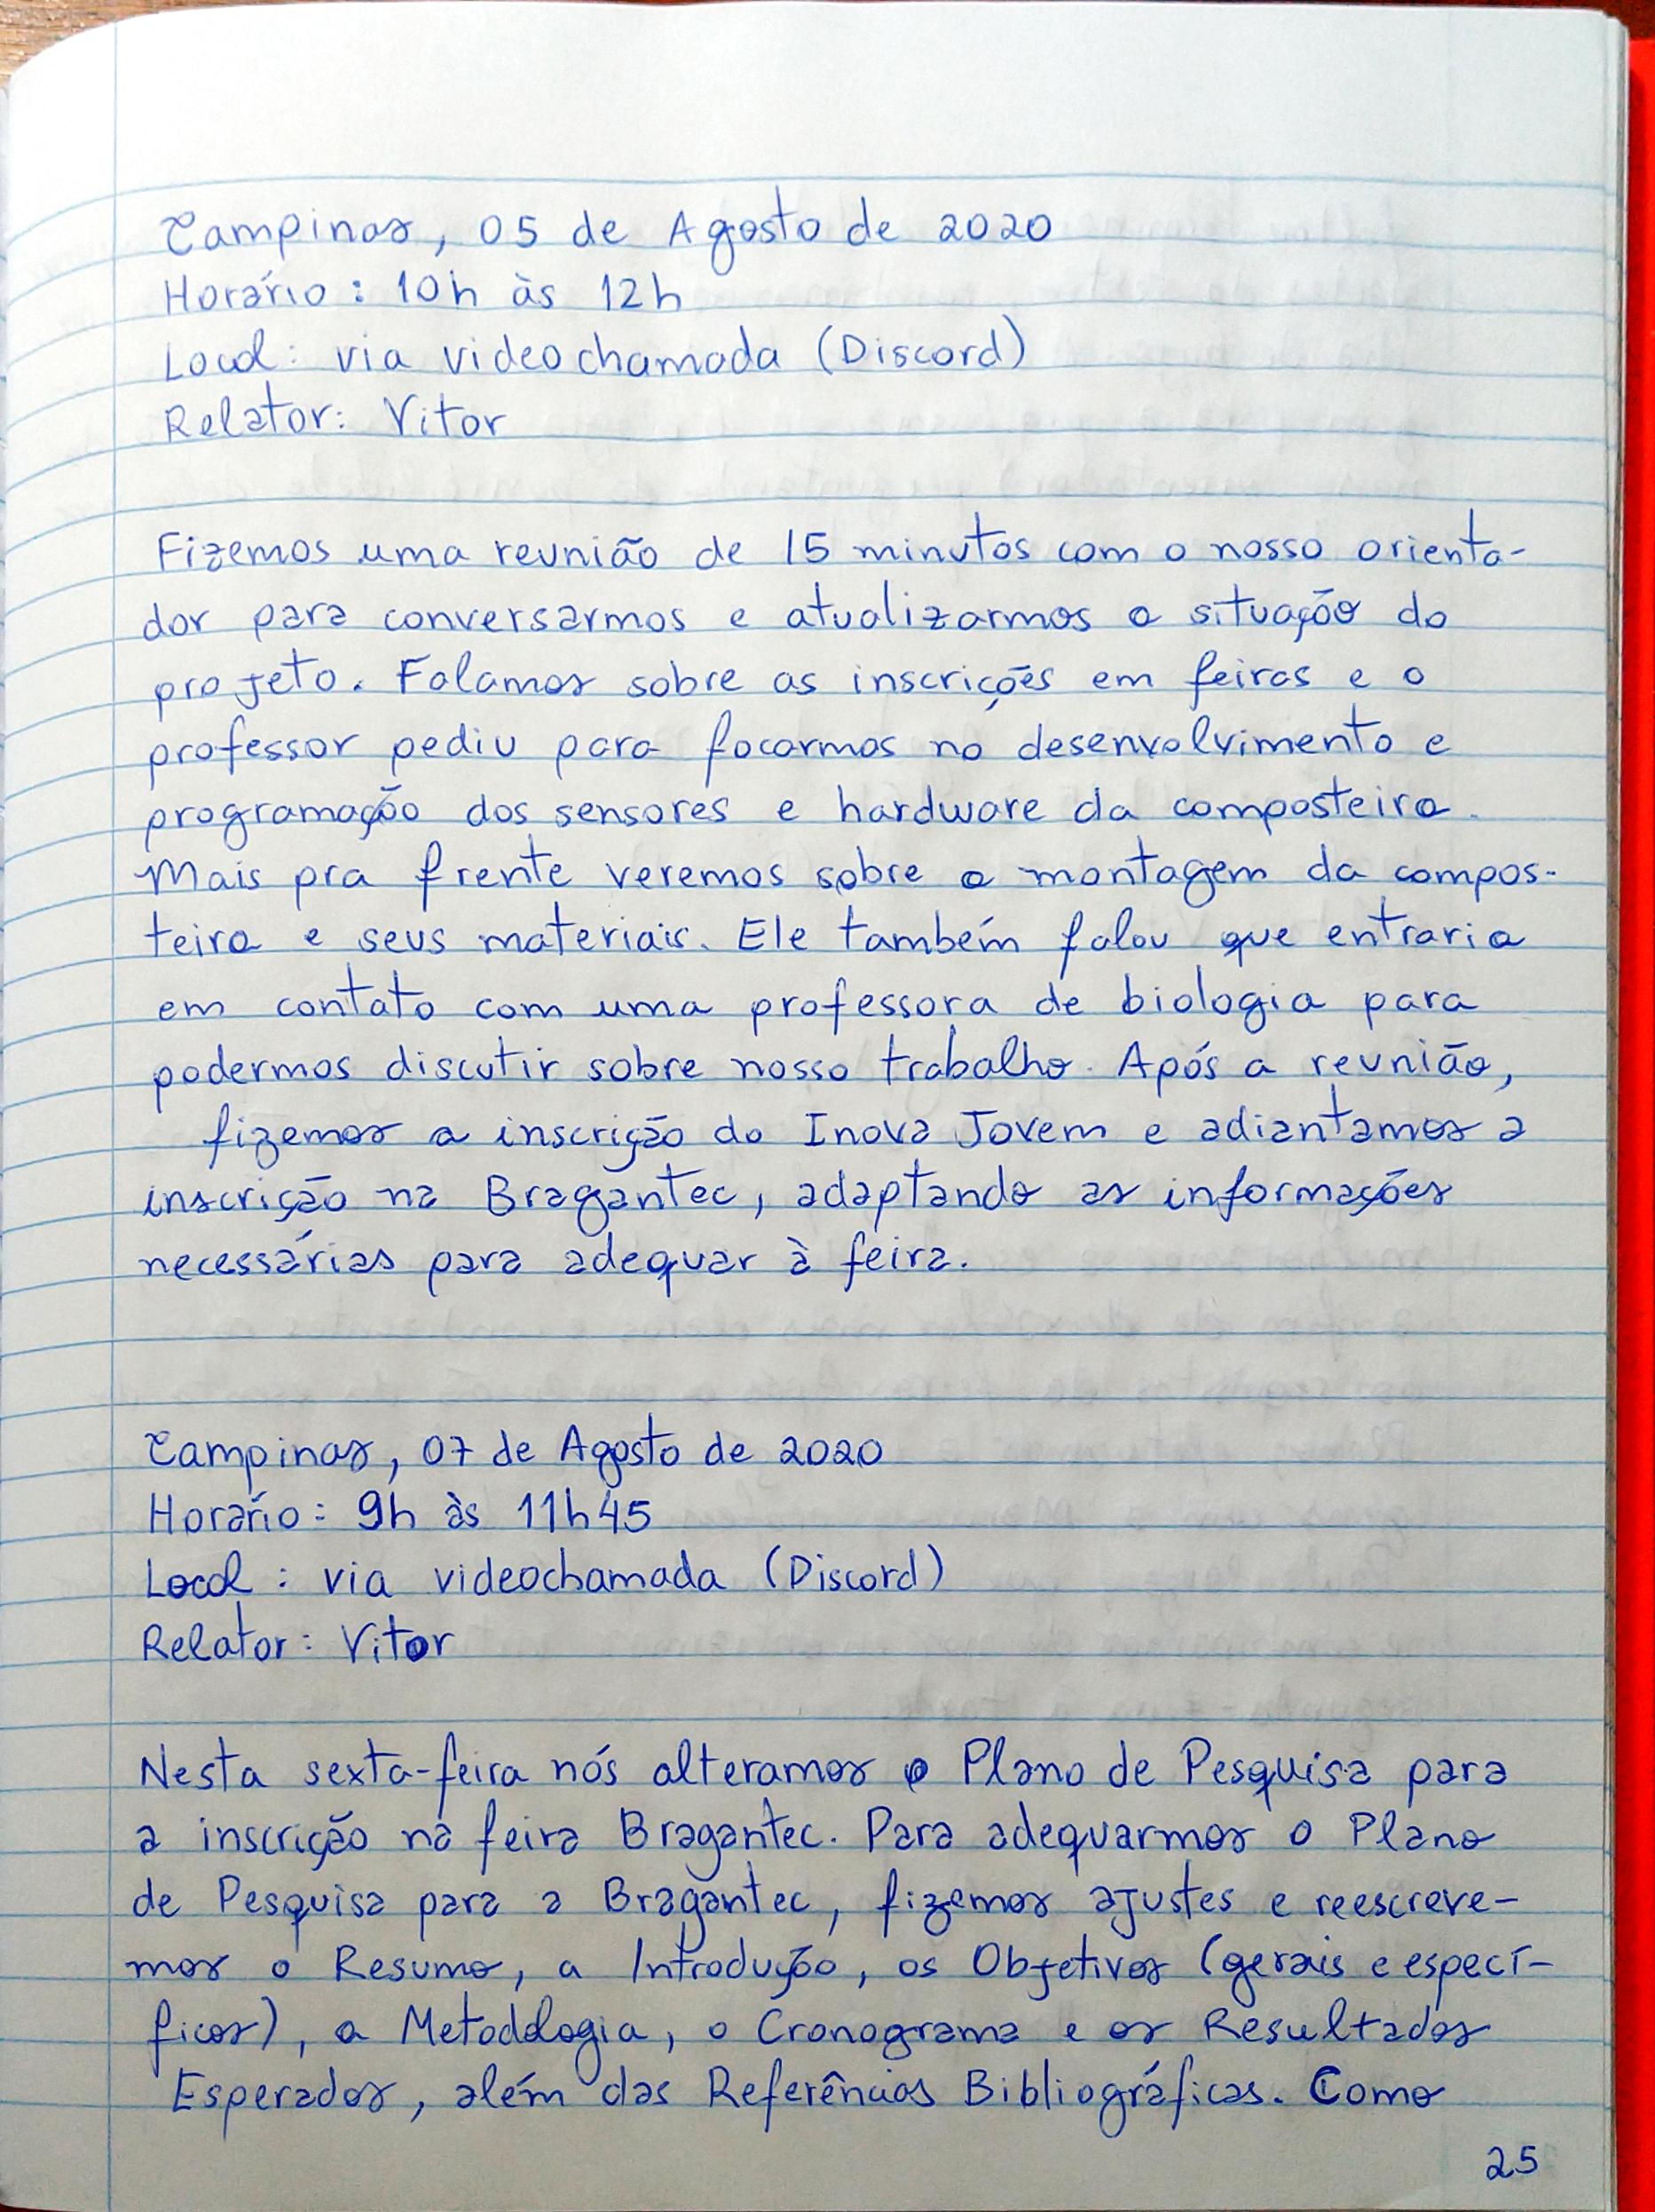 Campinas, 05 de Agosto de 2020
Horário: 10h às 12h
Local: via videochamada (Discord)
Relator: Vitor
Fizemos uma reunião de 15 minutos com o nosso orienta-
dor para conversarmos e atualizarmos a situação do
projeto. Falamos sobre as inscrições em feiras e o
professor pediu para focarmos no desenvolvimento e
programação dos sensores e hardware da composteira.
Mais pra frente veremos sobre a montagem da compos-
teira e seus materiais. Ele também falou que entraria
em contato com uma professora de biologia para
podermos discutir sobre nosso trabalho. Após a reunião,
fizemos a inscrição do Inova Jovem e adiantamos a
inscrição na Bragantec, adaptando as informações
necessárias para adequar à feira.
Campinas, 07 de Agosto de 2020
Horário: 9h às 11h45
Local: via videochamada (Discord)
Relator: Vitor
Nesta sexta-feira nós alteramos o Plano de Pesquisa para
a inscrição na feira Bragantec. Para adequarmos o Plano
de Pesquisa para a Bragantec, fizemos ajustes e reescreve-
mos o Resumo, a Introdução, os Objetivos (gerais e especí-
ficos), a Metodologia, o Cronograma e os Resultados
Esperados, além das Referências Bibliográficas. Como
25